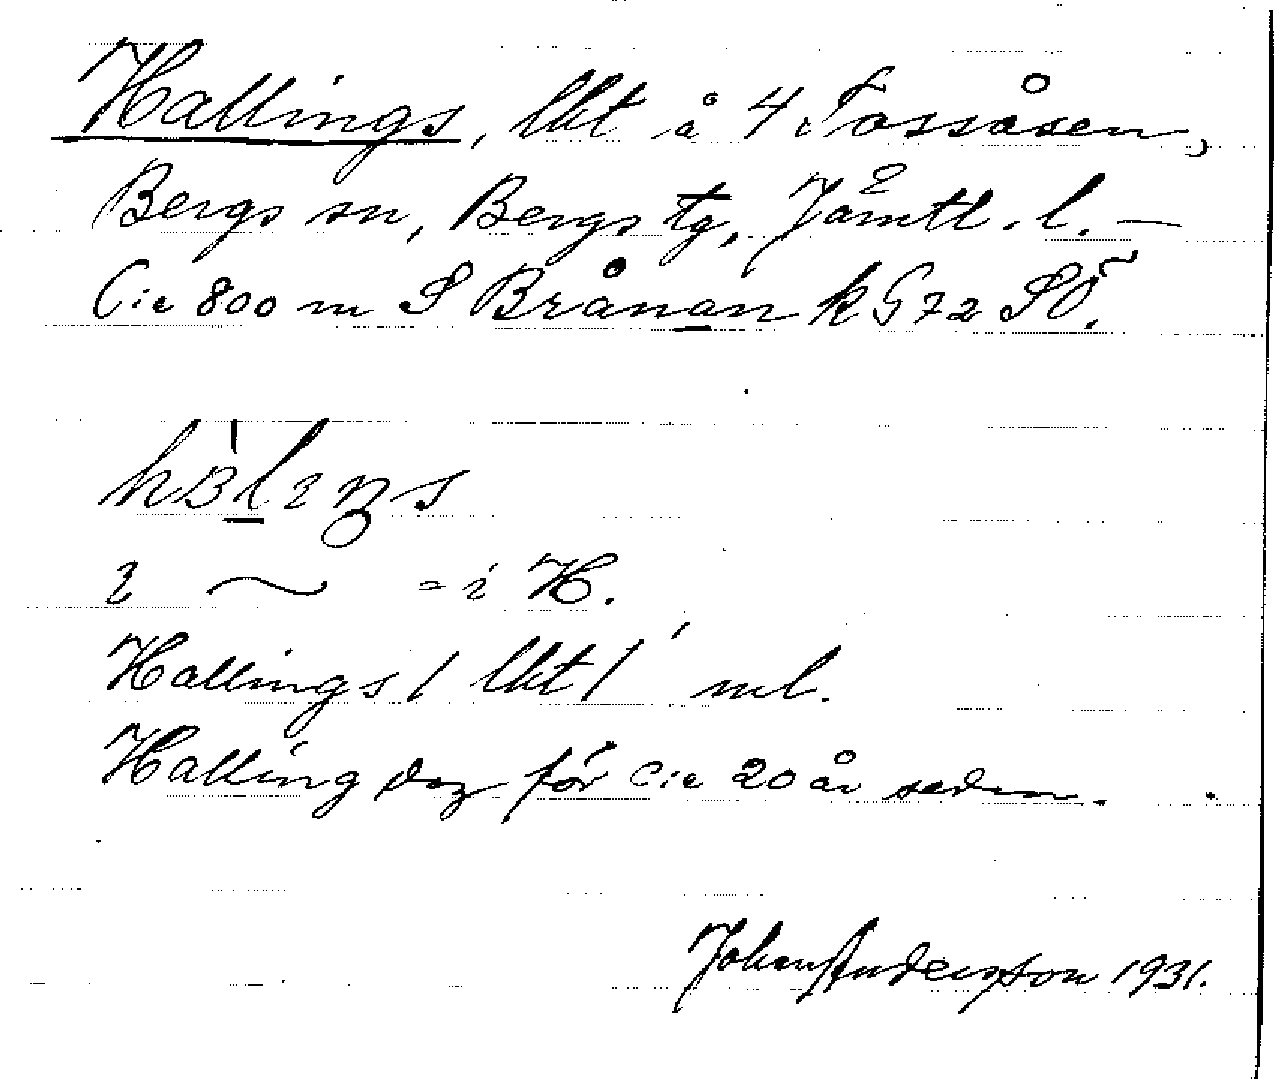 Hallings, lkt å 4 Fossåsen,
Bergs sn, Bergs tg, Jämtl. l. —
C:a 800 m S Brånan k G 72 SÖ.
i ~ = i H.
Hallings / lkt / ml.
Halling dog för c:a 20 år sedan.
Johan Andersson 1931.